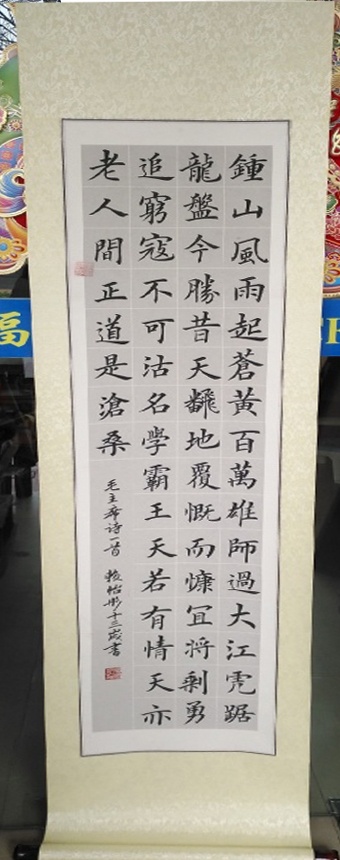 鍾山風雨起蒼黃百萬雄師過大江虎踞
龍盤今勝昔天飜地覆慨而慷宜將剩勇
追窮寇不可沽名學霸王天若有情天亦
老人間正道是滄桑
毛主席诗一首 賴怡彤十三歲書
福